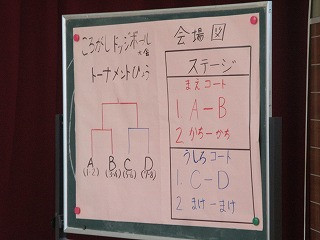 ころがしドッジボール
大会
トーナメントひょう
A B C D
(1・2) (3・4) (5・6) (7・8)
会場図
ステージ
まえコート
1. A-B
2. かち-かち
うしろコート
1. C-D
2. まけ-まけ